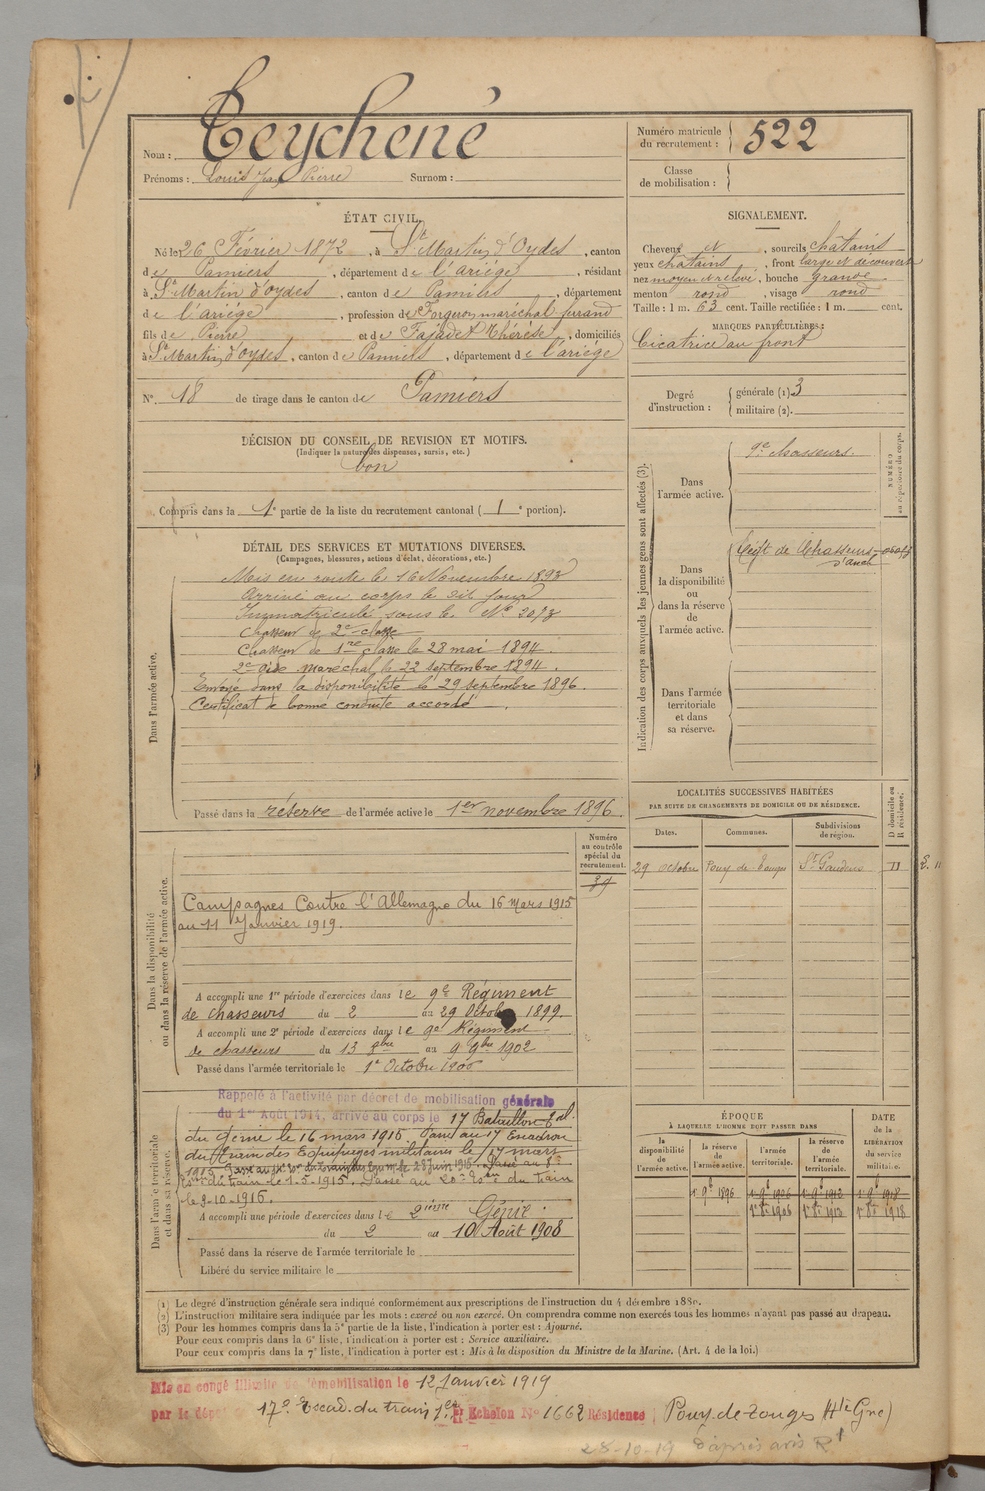 Nom : Teychené
Prénoms : Louis Jean Pierre Surnom :
Numéro matricule du recrutement : 522
Classe de mobilisation :
ÉTAT CIVIL.
Né le 26 Février 1872, à St Martin d'Oydes, canton
de Pamiers, département de l'ariège, résidant
à St Martin d'oydes, canton de Pamiers, département
de l'ariège, profession de Forgeron maréchal ferrand
fils de Pierre et de Fajadet Thérèse, domiciliés
à St Martin d'oydes, canton de Pamiers, département de l'ariège
N° 18 de tirage dans le canton de Pamiers
SIGNALEMENT.
Cheveux N, sourcils chatains
yeux chatains, front large et découvert
nez moyen et relevé, bouche grande
menton rond, visage rond
Taille : 1 m. 63 cent. Taille rectifiée : 1 m. cent.
MARQUES PARTICULIÈRES :
Cicatrice au front
Degré d'instruction : générale (1). 3
militaire (2).
DÉCISION DU CONSEIL DE REVISION ET MOTIFS.
(Indiquer la nature des dispenses, sursis, etc.)
bon
Compris dans la 1e partie de la liste du recrutement cantonal ( 1 e portion).
DÉTAIL DES SERVICES ET MUTATIONS DIVERSES.
(Campagnes, blessures, actions d'éclat, décorations, etc.)
Dans l'armée active.
Mis en route le 16 Novembre 1893
Arrivé au corps le dit jour
Immatriculé sous le N° 2073
Chasseur de 2e classe
Chasseur de 1re classe le 28 mai 1894.
2e aide maréchal le 22 septembre 1894.
Envoyé dans la disponibilité le 29 septembre 1896.
Certificat de bonne conduite accordé.
Passé dans la réserve de l'armée active le 1er novembre 1896.
Indication des corps auxquels les jeunes gens sont affectés (3).
NUMÉRO au répertoire du corps.
Dans l'armée active.
9e Chasseurs.
Dans la disponibilité ou dans la réserve de l'armée active.
Régt de Chasseurs
d'auch
Dans l'armée territoriale et dans sa réserve.
LOCALITÉS SUCCESSIVES HABITÉES
PAR SUITE DE CHANGEMENTS DE DOMICILE OU DE RÉSIDENCE.
Dates. Communes. Subdivisions de région. D domicile ou R résidence.
29 octobre Pouy de Touges St Gaudens D
Dans la disponibilité ou dans la réserve de l'armée active.
Numéro au contrôle spécial du recrutement.
Campagnes Contre l'Allemagne du 16 Mars 1915
au 11 Janvier 1919.
A accompli une 1re période d'exercices dans le 9e Régiment
de chasseurs du 2 au 29 Octobre 1899.
A accompli une 2e période d'exercices dans le 9e Régiment
de chasseurs du 13 8bre au 9 9bre 1902
Passé dans l'armée territoriale le 1er Octobre 1906
Dans l'armée territoriale et dans sa réserve.
Rappelé à l'activité par décret de mobilisation générale
du 1er Août 1914, arrivé au corps le 17 Bataillon
du Génie le 16 mars 1915. Passé au 17 Escadron
du Train des Equipages militaires le 17 mars
1915
du train le 1-5-1915. Passé au 20e du train
le 9-10-1916.
A accompli une période d'exercices dans le 2ième Génie
du 2 au 10 Août 1908
Passé dans la réserve de l'armée territoriale le
Libéré du service militaire le
ÉPOQUE
À LAQUELLE L'HOMME DOIT PASSER DANS
DATE DE LA LIBÉRATION du service militaire.
la disponibilité de l'armée active. la réserve de l'armée active. l'armée territoriale. la réserve de l'armée territoriale.
1er 9bre 1896 1er 9bre 1906 1er 9bre 1912 1er 9bre 1918
1er 8bre 1906 1er 8bre 1912 1er 8bre 1918
(1) Le degré d'instruction générale sera indiqué conformément aux prescriptions de l'instruction du 4 décembre 1889.
(2) L'instruction militaire sera indiquée par les mots : exercé ou non exercé. On comprendra comme non exercés tous les hommes n'ayant pas passé au drapeau.
(3) Pour les hommes compris dans la 5e partie de la liste, l'indication à porter est : Ajourné.
Pour ceux compris dans la 6e liste, l'indication à porter est : Service auxiliaire.
Pour ceux compris dans la 7e liste, l'indication à porter est : Mis à la disposition du Ministre de la Marine. (Art. 4 de la loi.)
Mis en congé illimité de démobilisation le 12 Janvier 1919
par le dépôt 17e Escad. du train 1er Echelon N° 1662 Résidence Pouy-de-Touges (Hte Gne)
28-10-19 d'après avis